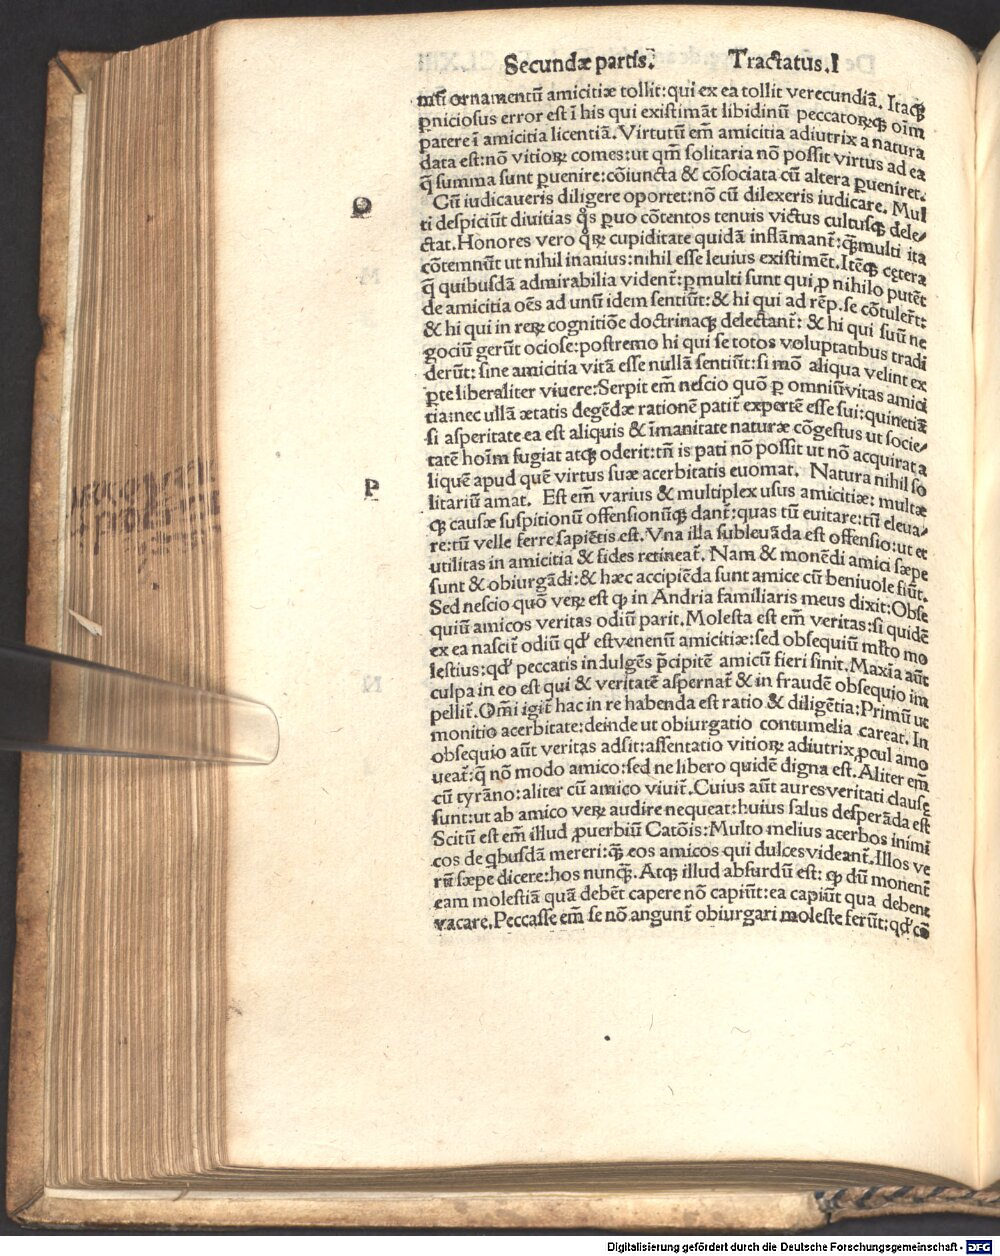 Secundæ partis. Tractatus. I
mũ ornamentũ amicitiæ tollit: qui ex ea tollit verecundiã. Itaqꝫ
ꝑniciosus error est ĩ his qui existimãt libidinũ peccatoꝝqꝫ oĩm
patere ĩ amicitia licentiã. Virtutũ em̃ amicitia adiutrix a natura
data est: nõ vitioꝝ comes: ut qm̃ solitaria nõ possit virtus ad ea
q̃ summa sunt ꝑuenire: cõiuncta & cõsociata cũ altera ꝑueniret.
O
Cũ iudicaueris diligere oportet: nõ cũ dilexeris iudicare. Mul
ti despiciũt diuitias q̊s ꝑuo cõtentos tenuis victus cultusqꝫ dele/
ctat. Honores vero q̊ꝝ cupiditate quidã inflãmant̃: qꝫ̃ multi ita
cõtemnũt ut nihil inanius: nihil esse leuius existimẽt. Itẽqꝫ cętera
q̃ quibusdã admirabilia vident̃: ꝑmulti sunt qui ꝓ nihilo putẽt
de amicitia oẽs ad unũ idem sentiũt: & hi qui ad rẽp. se cõtulert̃:
& hi qui in reꝝ cognitiõe doctrinaqꝫ delectant̃: & hi qui suũ ne
gociũ gerũt ociose: postremo hi qui se totos voluptatibus tradi
derũt: sine amicitia vitã esse nullã sentiũt: si mõ aliqua velint ex
ꝑte liberaliter viuere: Serpit em̃ nescio quõ ꝑ omniũ vitas amici
tia: nec ullã ætatis degẽdæ rationẽ patit̃ expertẽ esse sui: quinetiã
si asperitate ea est aliquis & ĩmanitate naturæ cõgestus ut socie/
tatẽ hoĩm fugiat atqꝫ oderit: tñ is pati nõ possit ut nõ acquirat a
liquẽ apud quẽ virtus suæ acerbitatis euomat. Natura nihil so
P
litariũ amat. Est em̃ varius & multiplex usus amicitiæ: multæ
qꝫ causæ suspitionũ offensionũqꝫ dant̃: quas tũ euitare: tũ eleua/
re: tũ velle ferre sapiẽtis est. Vna illa subleuãda est offensio: ut et
utilitas in amicitia & fides retineat̃. Nam & monẽdi amici sæpe
sunt & obiurgãdi: & hæc accipiẽda sunt amice cũ beniuole fiũt.
Sed nescio quõ veꝝ est ꝙ in Andria familiaris meus dixit: Obse
quiũ amicos veritas odiũ parit. Molesta est em̃ veritas: si quidẽ
ex ea nascit̃ odiũ qđ est venenũ amicitiæ: sed obsequiũ mĩto mo
lestius: qđ peccatis indulgẽs p̃cipitẽ amicũ fieri sinit. Maxĩa aũt
culpa in eo est qui & veritatẽ aspernat̃ & in fraudẽ obsequio im
pellit̃. Oĩmi igit̃ hac in re habenda est ratio & diligẽtia: Primũ ut
monitio acerbitate: deinde ut obiurgatio contumelia careat. In
obsequio aũt veritas adsit: assentatio vitioꝝ adiutrix ꝓcul amo
ueat̃: q̃ nõ modo amico: sed ne libero quidẽ digna est. Aliter em̃
cũ tyrãno: aliter cũ amico viuit̃. Cuius aũt aures veritati clausę
sunt: ut ab amico veꝝ audire nequeat: huius salus desperãda est
Scitũ est em̃ illud ꝓuerbiũ Catõis: Multo melius acerbos inimi
cos de qbusdã mereri: qꝫ̃ eos amicos qui dulces videant̃. Illos ve
rũ sæpe dicere: hos nunqꝫ̃. Atqꝫ illud absurdũ est: ꝙ dũ monent̃
eam molestiã quã debẽt capere nõ capiũt: ea capiũt qua debent
vacare. Peccasse em̃ se nõ angunt̃ obiurgari moleste ferũt: qđ cõ
Digitalisierung gefördert durch die Deutsche Forschungsgemeinschaft - DFG